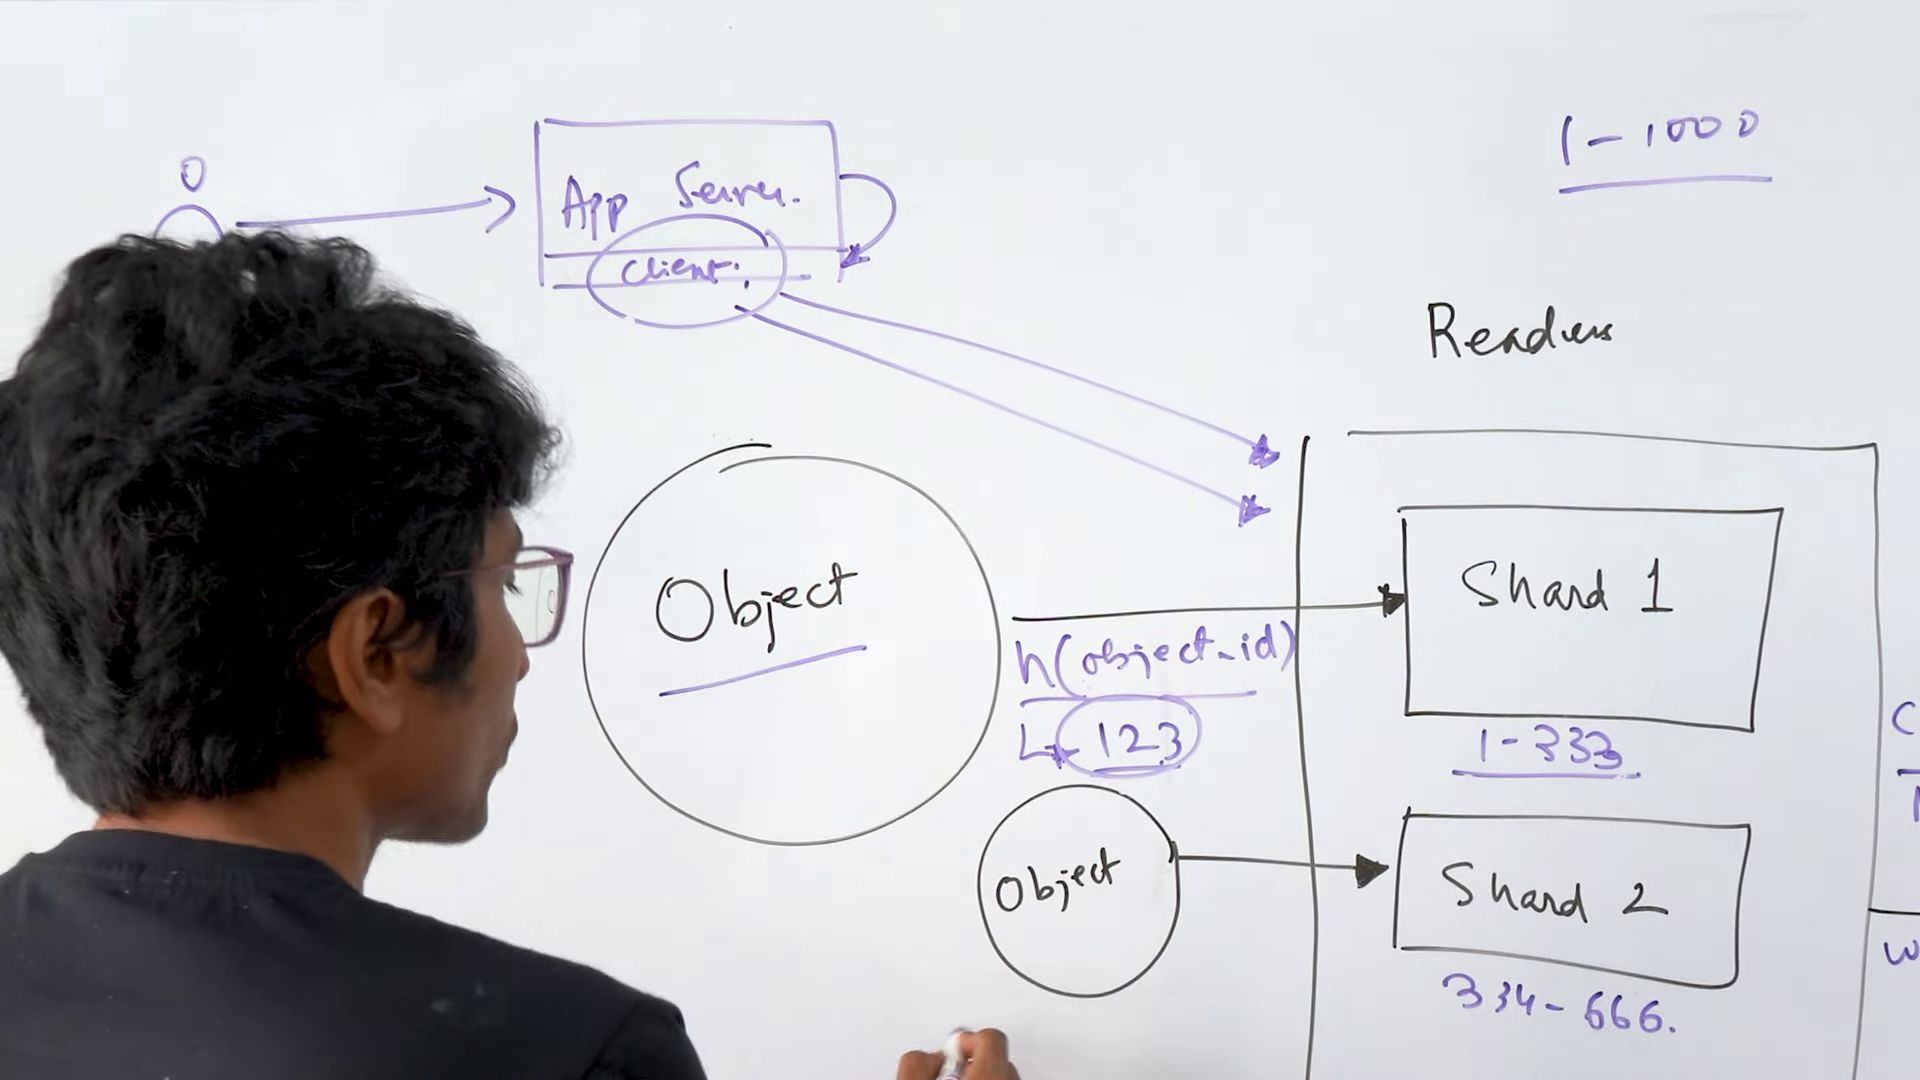 1-1000
App Server.
Client.
Readers
Object
Shard 1
h(object_id)
123
1-333
Object
Shard 2
334-666.